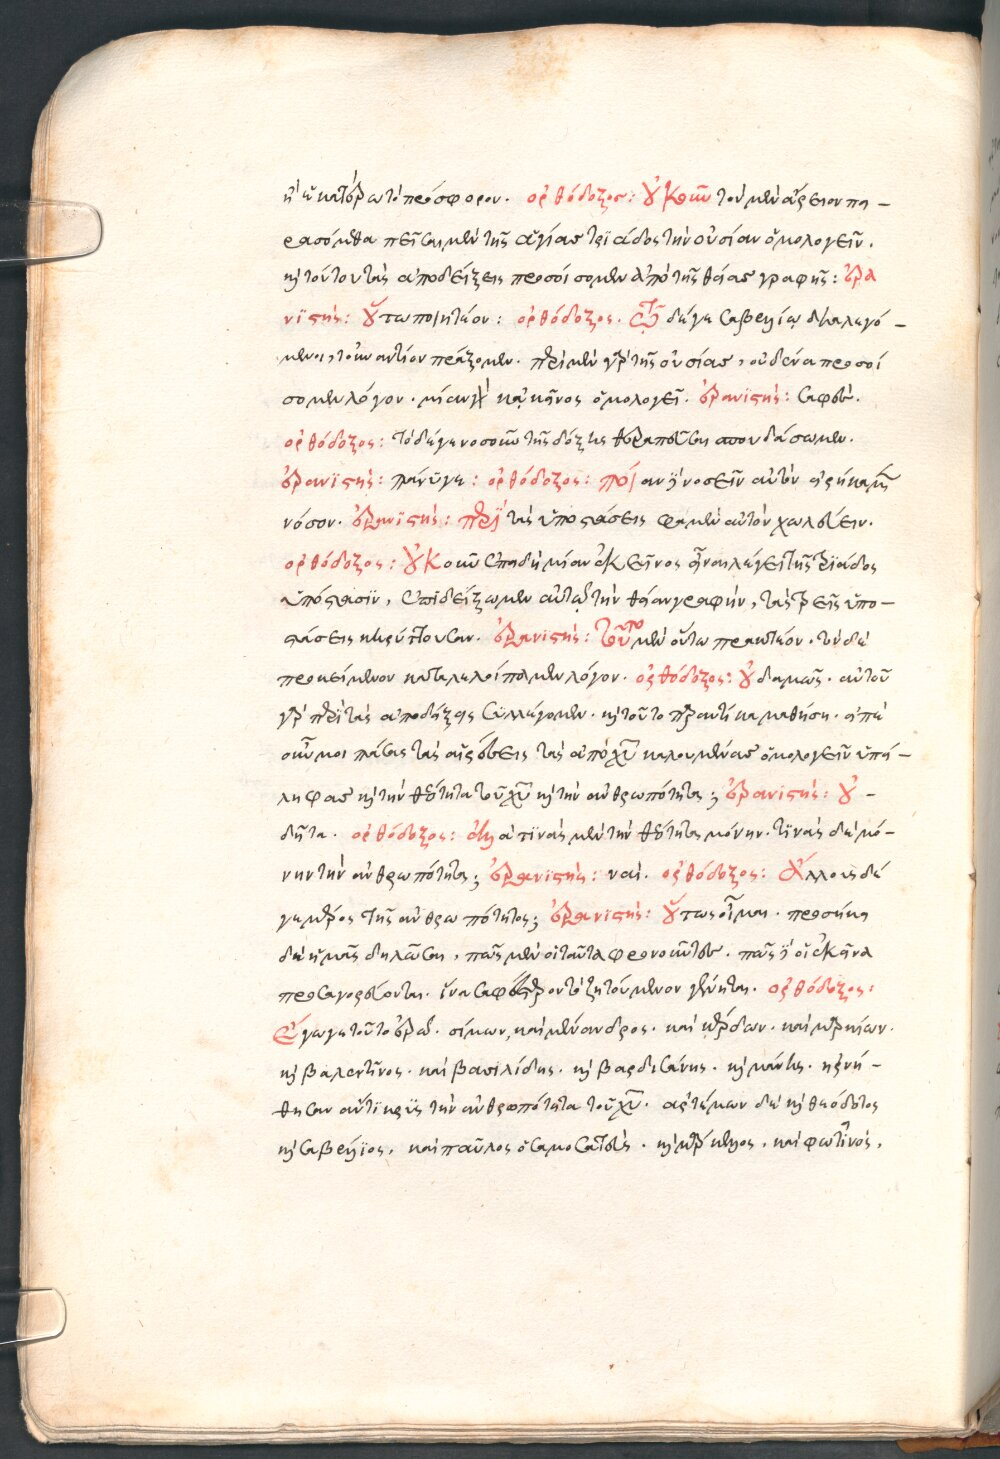 ἢ ἑκατέρῳ τὸ πρόσφορον. ὀρθόδοξος: Οὐκοῦν τὸν μὲν ἄρειον πει-
ρασόμεθα πεῖσαι μὲν τῆς ἁγίας τριάδος τὴν οὐσίαν ὁμολογεῖν.
καὶ τούτου τὰς ἀποδείξεις προσοίσομεν ἀπὸ τῆς θείας γραφῆς: ἐρα
νιστής: Οὕτω ποιητέον: ὀρθόδοξος. Τῷ δέ γε σαβελλίῳ διαλεγό-
μενοι, τοὐναντίον πράξομεν. περὶ μὲν γὰρ τῆς οὐσίας, οὐδένα προσοί
σομεν λόγον. μίαν γὰρ κἀκεῖνος ὁμολογεῖ. ἐρανιστής: σαφῶς.
ὀρθόδοξος: τὸ δέ γε νοσοῦν τῆς δόξης θεραπεῦσαι σπουδάσωμεν.
ἐρανιστής: πάνυ γε: ὀρθόδοξος: ποίαν δὲ νοσεῖν αὐτὸν εἰρήκαμεν
νόσον. ἐρανιστής: περὶ τὰς ὑποστάσεις φαμὲν αὐτὸν χωλεύειν.
ὀρθόδοξος: Οὐκοῦν ἐπειδὴ μίαν ἐκεῖνος εἶναι λέγει τῆς τριάδος
ὑπόστασιν, ἐπιδείξωμεν αὐτῷ τὴν θείαν γραφὴν, τὰς τρεῖς ὑπο-
στάσεις κηρύττουσαν. ἐρανιστής: Τοῦτο μὲν οὕτω πρακτέον. τὸν δὲ
προκείμενον καταλελοίπαμεν λόγον. ὀρθόδοξος: Οὐδαμῶς. αὐτοῦ
γὰρ περὶ τὰς ἀποδείξεις συλλέγομεν. καὶ τοῦτο παραυτίκα μαθήση. εἰπὲ
οὖν μοι πάσας τὰς αἱρέσεις τὰς ἀπὸ χυ καλουμένας ὁμολογεῖν ὑπεί-
ληφας καὶ τὴν θεότητα τοῦ χυ καὶ τὴν ἀνθρωπότητα; ἐρανιστής: Οὐ-
δῆτα. ὀρθόδοξος: ἀλλὰ τινὰς μὲν τὴν θεότητα μόνην. τινὰς δὲ μό-
νην τὴν ἀνθρωπότητα; ἐρανιστής: ναί. ὀρθόδοξος: Ἄλλους δέ
γε μέρος τῆς ἀνθρωπότητος; ἐρανιστής: Οὕτως οἶμαι. προσήκει
δὲ ἡμᾶς δηλῶσαι, πῶς μὲν οἱ ταῦτα φρονοῦντες. πῶς δὲ οἱ ἐκεῖνα
προσαγορεύονται. ἵνα σαφέστερον τὸ ζητούμενον γένηται. ὀρθόδοξος:
Ἔγωγε τοῦτο ἐρῶ. σίμων, καὶ μένανδρος. καὶ κέρδων. καὶ μαρκίων.
καὶ βαλεντῖνος. καὶ βασιλίδης. καὶ βαρδισάνης. καὶ μάνης. ἠρνή-
θησαν ἄντικρυς τὴν ἀνθρωπότητα τοῦ χυ. ἀρτέμων δὲ καὶ θεόδοτος
καὶ σαβέλλιος, καὶ παῦλος ὁ σαμοσατεὺς. καὶ μάρκελλος, καὶ φωτεινὸς,